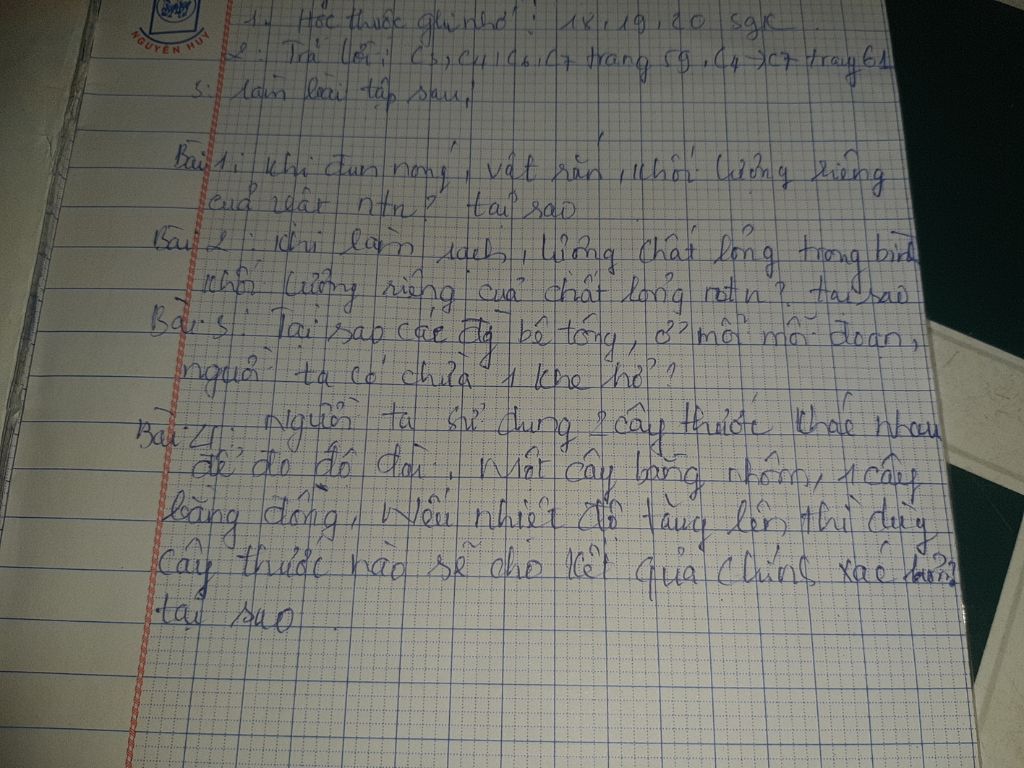 NGUYÊN HUY
1. Học thuộc ghi nhớ: 18, 19, 20 SGK
2. Trả lời: C3, C4, C6, C7 trang 59, C4 → C7 trang 61
3. làm bài tập sau!
Bài 1: Khi đun nóng, vật rắn, khối lượng riêng
của vật ntn? tại sao
Bài 2: Khi làm lạnh, lượng chất lỏng trong bình
khối lượng riêng của chất lỏng ntn? tại sao
Bài 3: Tại sao các đg bê tông, ở mỗi một đoạn,
người ta có chừa 1 khe hở?
Bài 4: Người ta sử dụng 2 cây thước khác nhau
để đo độ dài. Một cây bằng nhôm, 1 cây
bằng đồng. Nếu nhiệt độ tăng lên thì dùng
cây thước nào sẽ cho kết quả chính xác hơn?
tại sao.